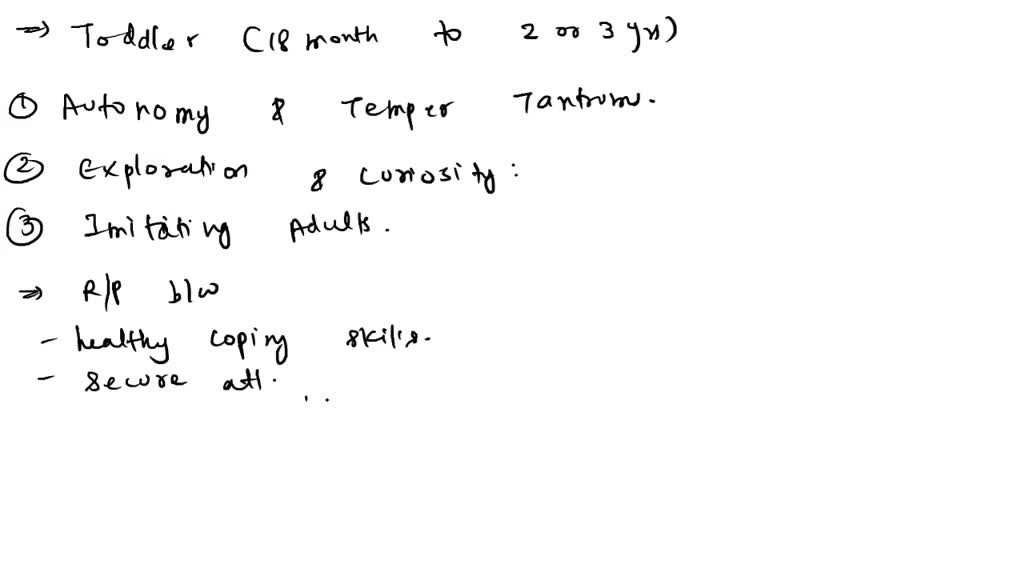 ⇒ Toddler (18 month to 2 or 3 yrs)
① Autonomy & Temper Tantrums.
② Exploration & curiosity:
③ Imitating Adults.
⇒ R/P b/w
- healthy coping skills.
- secure att.